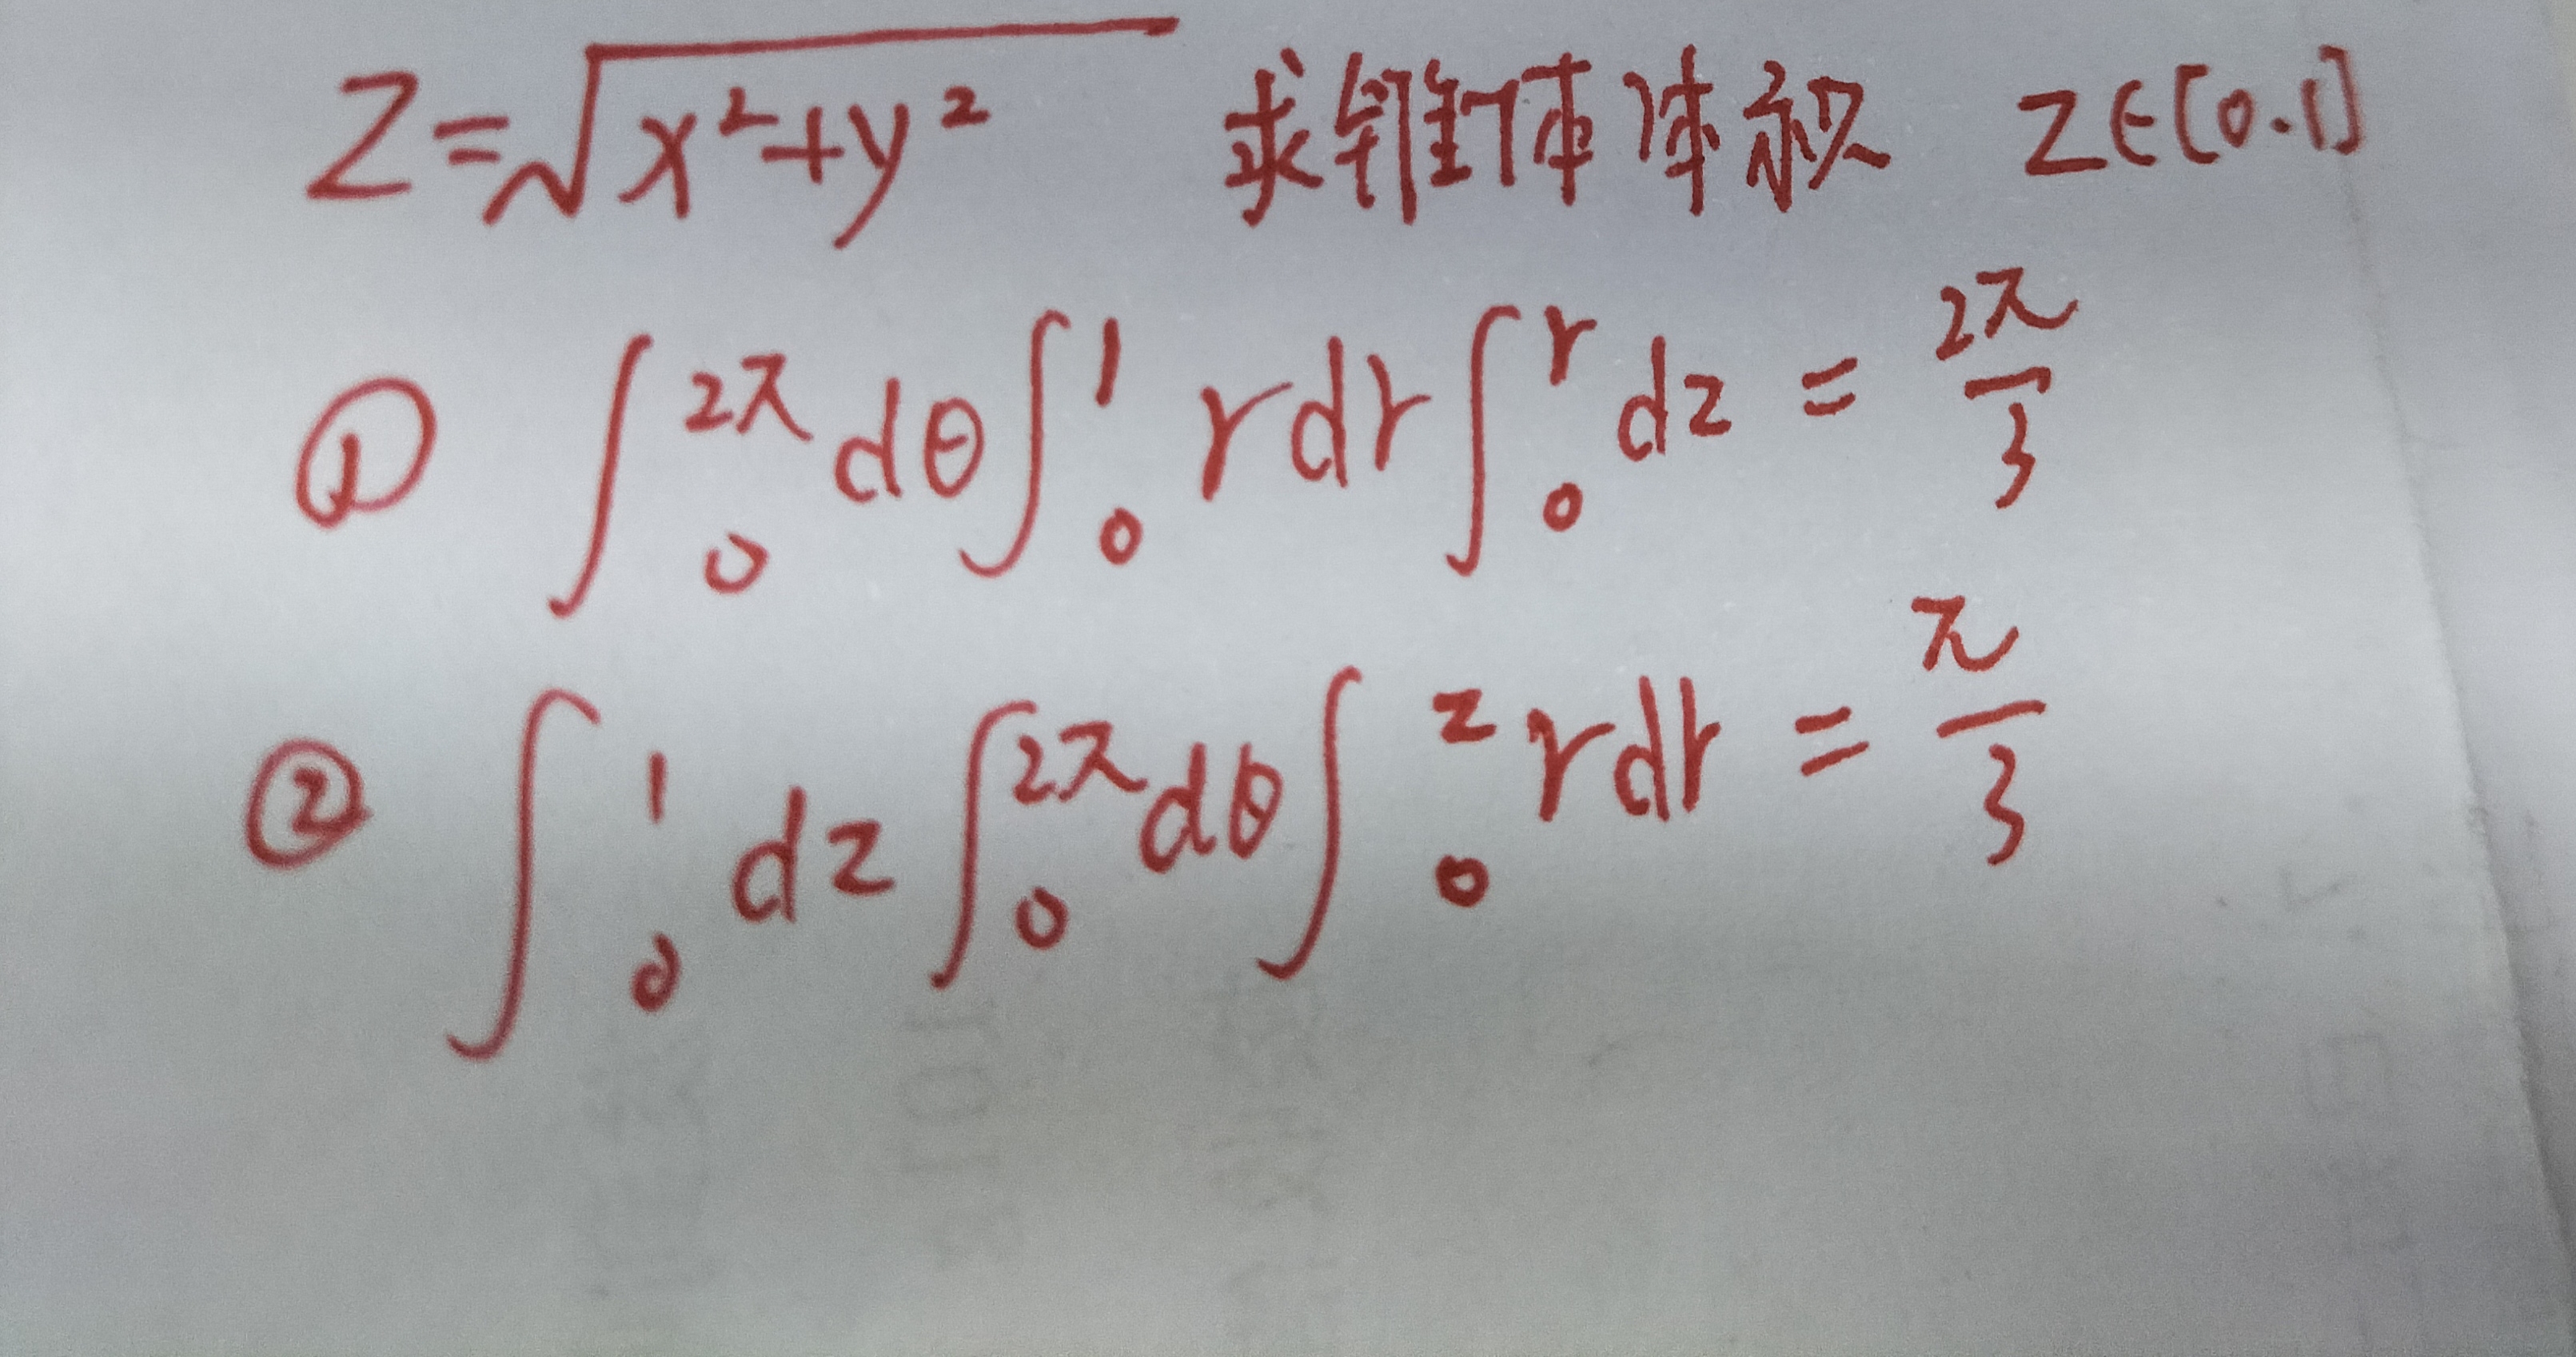 Z=√(x²+y²) 求锥体体积 Z∈[0.1]
① ∫₀^2π dθ∫₀^1 rdr∫₀^r dz = 2π/3
② ∫₀^1 dz∫₀^2π dθ∫₀^z rdr = π/3